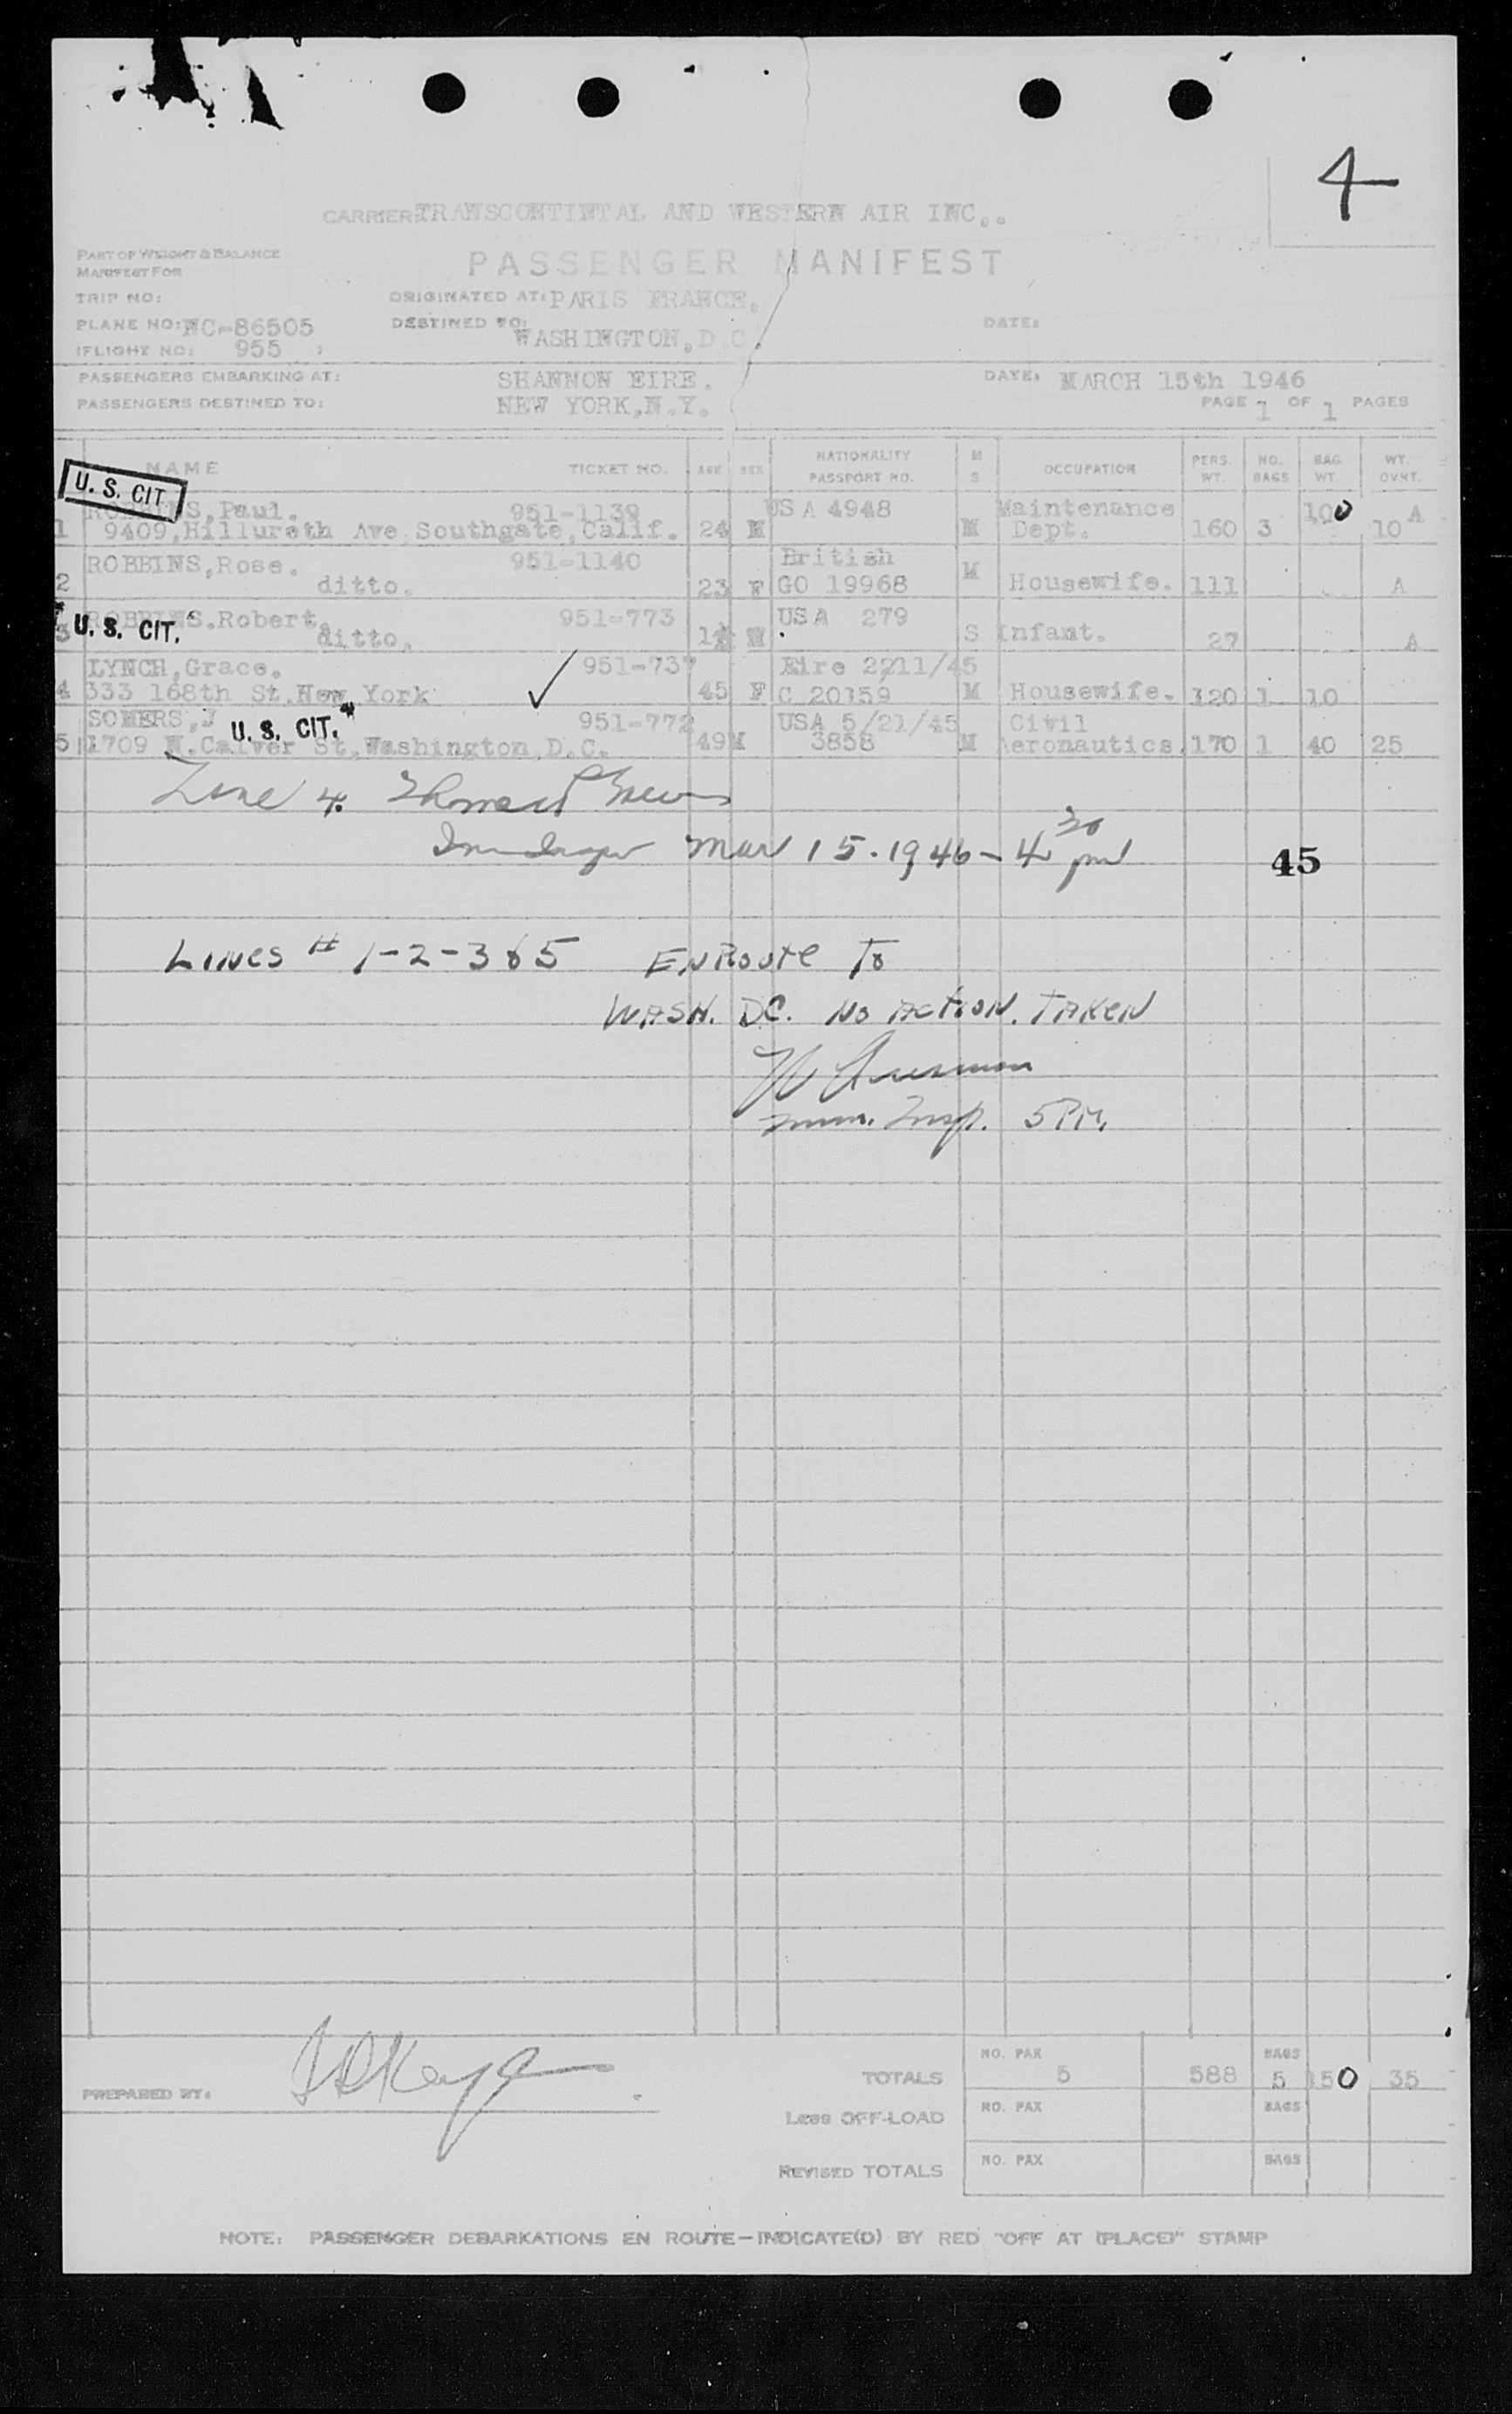 4
CARRIER TRANSCONTINTAL AND WESTERN AIR INC..
PART OF WEIGHT & BALANCE
MANIFEST FOR
PASSENGER MANIFEST
TRIP NO:
ORIGINATED AT: PARIS FRANCE.
PLANE NO: NC-86505
DESTINED TO: WASHINGTON, D.C.
DATE:
(FLIGHT NO: 955 )
PASSENGERS EMBARKING AT: SHANNON EIRE. DATE: MARCH 15th 1946
PASSENGERS DESTINED TO: NEW YORK, N.Y. PAGE 1 OF 1 PAGES
NAME TICKET NO. AGE SEX NATIONALITY PASSPORT NO. M S OCCUPATION PERS. WT. NO. BAGS BAG WT. WT. OVWT.
U. S. CIT.
ROBBINS, Paul. 951-1139 USA 4948 Maintenance 100 A
1 9409, Hillureth Ave, Southgate, Calif. 24 M M Dept. 160 3 10
ROBBINS, Rose. 951-1140 British M
2 ditto. 23 F GO 19968 Housewife. 111 A
ROBBINS. Robert. 951-773 USA 279
3 U. S. CIT. ditto, M S Infant. 27 A
LYNCH, Grace. 951-737 Eire 2211/45
4 333 168th St. New York 45 F C 20159 M Housewife. 120 1 10
SOMERS, J U. S. CIT. 951-772 USA 5/21/45 Civil
5 1709 N. Calver St, Washington, D.C. 49 M 3858 M Aeronautics. 170 1 40 25
Line 4.
Mar 15. 1946 - 4 30 pm
45
Lines # 1-2-3 & 5 EnRoute To
WASH. DC. No Action. Taken
Imm. Insp. 5 PM.
PREPARED BY:
TOTALS NO. PAX 5 588 BAGS 5 150 35
Less OFF-LOAD NO. PAX BAGS
REVISED TOTALS NO. PAX BAGS
NOTE: PASSENGER DEBARKATIONS EN ROUTE—INDICATE(D) BY RED "OFF AT (PLACE)" STAMP